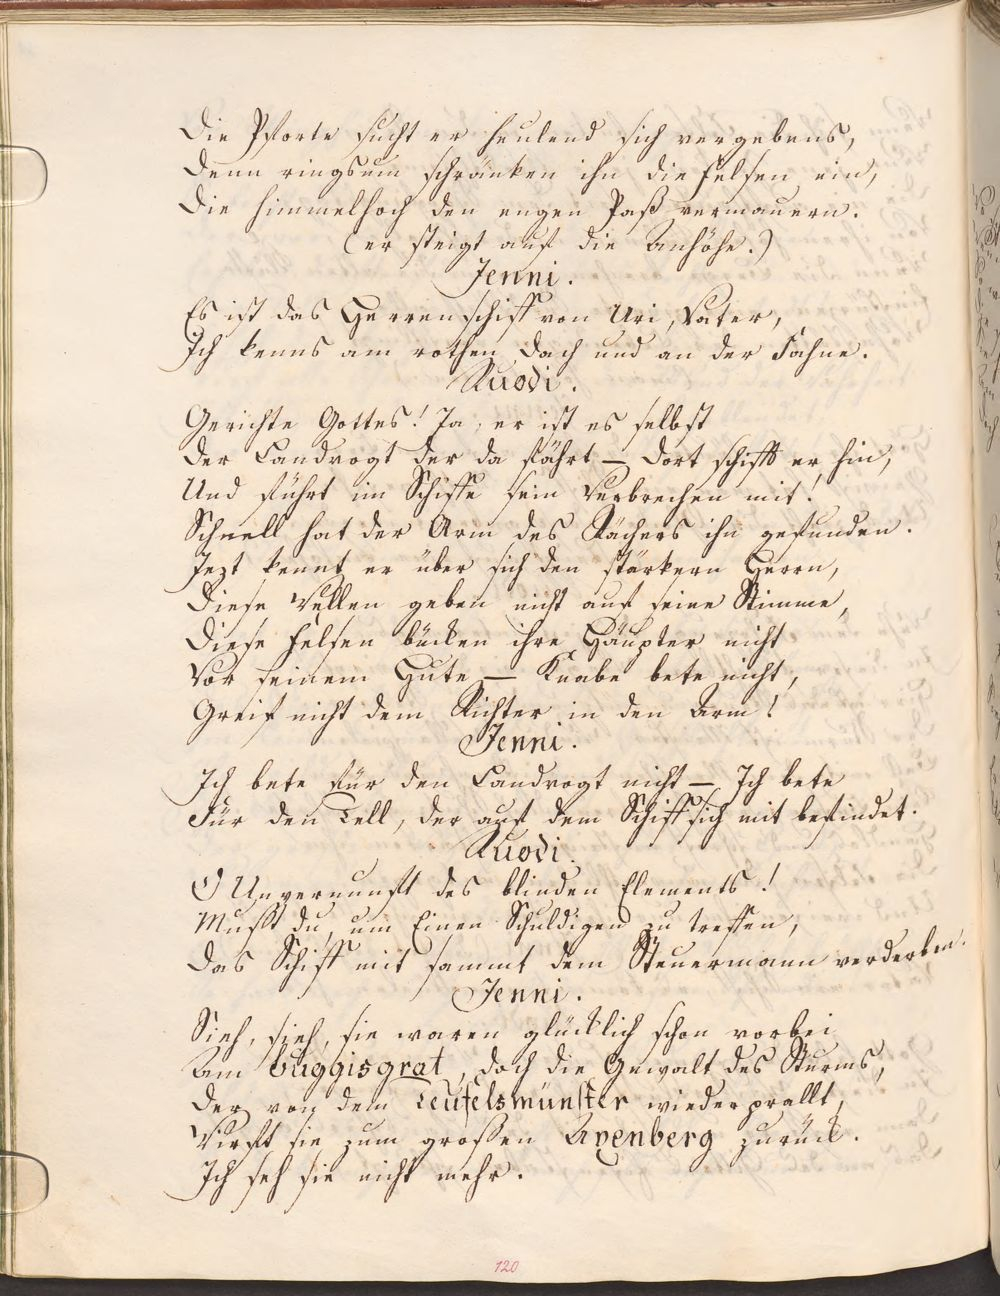 Die Pforte sucht er heulend sich vergebens,
Denn ringsum schränken ihn die Felsen ein,
Die himmelhoch den engen Paß vermauern.
(er steigt auf die Anhöhe.)
Jenni.
Es ist das Herrenschiff von Uri, Vater,
Ich kenns am rothen Dach und an der Fahne.
Ruodi.
Gerichte Gottes! Ja, er ist es selbst
Der Landvogt der da fährt — Dort schifft er hin,
Und führt im Schiffe sein Verbrechen mit!
Schnell hat der Arm des Rächers ihn gefunden.
Jezt kennt er über sich den stärkern Herrn,
Diese Wellen geben nicht auf seine Stimme,
Diese Felsen bücken ihre Häupter nicht
Vor seinem Hute — Knabe bete nicht,
Greif nicht dem Richter in den Arm!
Jenni.
Ich bete für den Landvogt nicht — Ich bete
Für den Tell, der auf dem Schiff sich mit befindet.
Ruodi.
O Unvernunft des blinden Elements!
Mußt du, um Einen Schuldigen zu treffen,
Das Schiff mit sammt dem Steuermann verderben.
Jenni.
Sieh, sieh, sie waren glücklich schon vorbei
Am Buggisgrat, doch die Gewalt des Sturms,
Der von dem Teufelsmünster wiederprallt,
Wirft sie zum großen Axenberg zurück.
Ich seh sie nicht mehr.
120